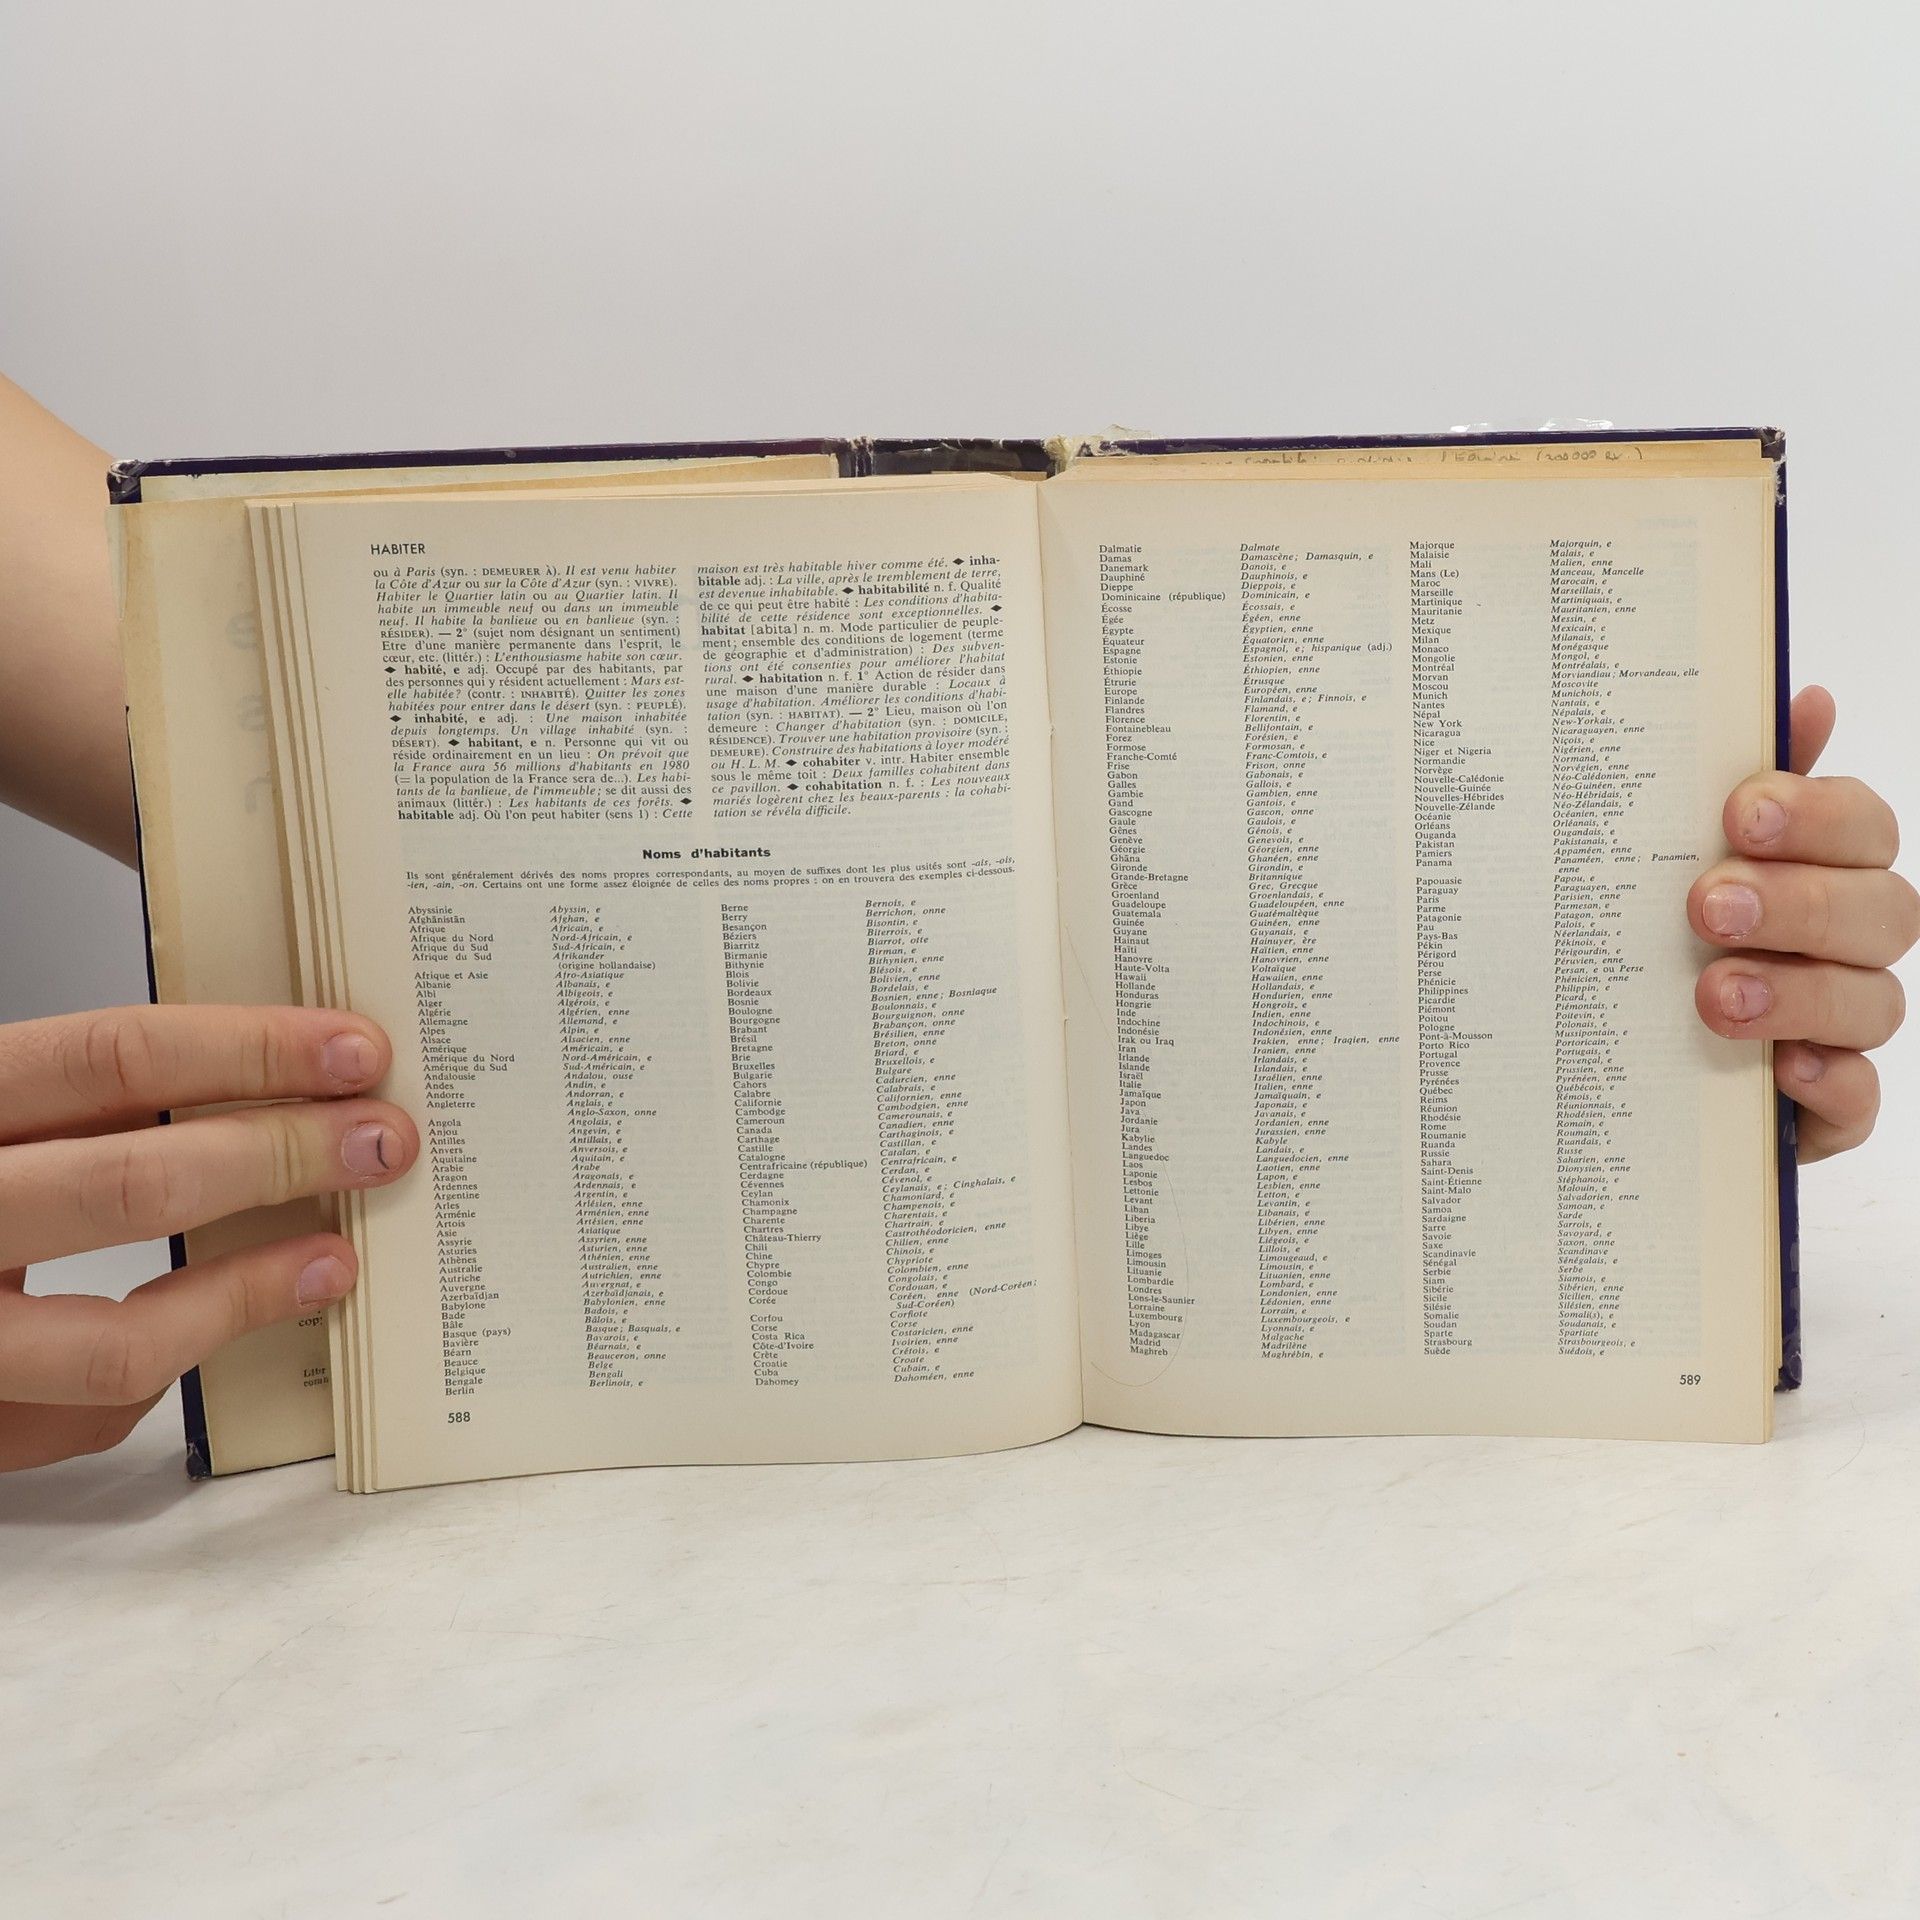 HABITER
ou à Paris (syn. : DEMEURER À). Il est venu habiter
la Côte d'Azur ou sur la Côte d'Azur (syn. : VIVRE).
Habiter le Quartier latin ou au Quartier latin. Il
habite un immeuble neuf ou dans un immeuble
neuf. Il habite la banlieue ou en banlieue (syn. :
RÉSIDER). — 2° (sujet nom désignant un sentiment)
Etre d'une manière permanente dans l'esprit, le
cœur, etc. (littér.) : L'enthousiasme habite son cœur.
◆ habité, e adj. Occupé par des habitants, par
des personnes qui y résident actuellement : Mars est-
elle habitée? (contr. : INHABITÉ). Quitter les zones
habitées pour entrer dans le désert (syn. : PEUPLÉ).
◆ inhabité, e adj. : Une maison inhabitée
depuis longtemps. Un village inhabité (syn. :
DÉSERT). ◆ habitant, e n. Personne qui vit ou
réside ordinairement en un lieu : On prévoit que
la France aura 56 millions d'habitants en 1980
(= la population de la France sera de...). Les habi-
tants de la banlieue, de l'immeuble; se dit aussi des
animaux (littér.) : Les habitants de ces forêts. ◆
habitable adj. Où l'on peut habiter (sens 1) : Cette
maison est très habitable hiver comme été. ◆ inha-
bitable adj. : La ville, après le tremblement de terre,
est devenue inhabitable. ◆ habitabilité n. f. Qualité
de ce qui peut être habité : Les conditions d'habita-
bilité de cette résidence sont exceptionnelles. ◆
habitat [abita] n. m. Mode particulier de peuple-
ment; ensemble des conditions de logement (terme
de géographie et d'administration) : Des subven-
tions ont été consenties pour améliorer l'habitat
rural. ◆ habitation n. f. 1° Action de résider dans
une maison d'une manière durable : Locaux à
usage d'habitation. Améliorer les conditions d'habi-
tation (syn. : HABITAT). — 2° Lieu, maison où l'on
demeure : Changer d'habitation (syn. : DOMICILE,
RÉSIDENCE). Trouver une habitation provisoire (syn. :
DEMEURE). Construire des habitations à loyer modéré
ou H. L. M. ◆ cohabiter v. intr. Habiter ensemble
sous le même toit : Deux familles cohabitent dans
ce pavillon. ◆ cohabitation n. f. : Les nouveaux
mariés logèrent chez les beaux-parents : la cohabi-
tation se révéla difficile.
Noms d'habitants
Ils sont généralement dérivés des noms propres correspondants, au moyen de suffixes dont les plus usités sont -ais, -ois,
-ien, -ain, -on. Certains ont une forme assez éloignée de celles des noms propres : on en trouvera des exemples ci-dessous.
Abyssinie Abyssin, e
Afghānistān Afghan, e
Afrique Africain, e
Afrique du Nord Nord-Africain, e
Afrique du Sud Sud-Africain, e
Afrique du Sud Afrikander
(origine hollandaise)
Afrique et Asie Afro-Asiatique
Albanie Albanais, e
Albi Albigeois, e
Alger Algérois, e
Algérie Algérien, enne
Allemagne Allemand, e
Alpes Alpin, e
Alsace Alsacien, enne
Amérique Américain, e
Amérique du Nord Nord-Américain, e
Amérique du Sud Sud-Américain, e
Andalousie Andalou, ouse
Andes Andin, e
Andorre Andorran, e
Angleterre Anglais, e
Anglo-Saxon, onne
Angola Angolais, e
Anjou Angevin, e
Antilles Antillais, e
Anvers Anversois, e
Aquitaine Aquitain, e
Arabie Arabe
Aragon Aragonais, e
Ardennes Ardennais, e
Argentine Argentin, e
Arles Arlésien, enne
Arménie Arménien, enne
Artois Artésien, enne
Asie Asiatique
Assyrie Assyrien, enne
Asturies Asturien, enne
Athènes Athénien, enne
Australie Australien, enne
Autriche Autrichien, enne
Auvergne Auvergnat, e
Azerbaïdjan Azerbaïdjanais, e
Babylone Babylonien, enne
Bade Badois, e
Bâle Bâlois, e
Basque (pays) Basque; Basquais, e
Bavière Bavarois, e
Béarn Béarnais, e
Beauce Beauceron, onne
Belgique Belge
Bengale Bengali
Berlin Berlinois, e
Berne Bernois, e
Berry Berrichon, onne
Besançon Bisontin, e
Béziers Biterrois, e
Biarritz Biarrot, otte
Birmanie Birman, e
Bithynie Bithynien, enne
Blois Blésois, e
Bolivie Bolivien, enne
Bordeaux Bordelais, e
Bosnie Bosnien, enne; Bosniaque
Boulogne Boulonnais, e
Bourgogne Bourguignon, onne
Brabant Brabançon, onne
Brésil Brésilien, enne
Bretagne Breton, onne
Brie Briard, e
Bruxelles Bruxellois, e
Bulgarie Bulgare
Cahors Cadurcien, enne
Calabre Calabrais, e
Californie Californien, enne
Cambodge Cambodgien, enne
Cameroun Camerounais, e
Canada Canadien, enne
Carthage Carthaginois, e
Castille Castillan, e
Catalogne Catalan, e
Centrafricaine (république) Centrafricain, e
Cerdagne Cerdan, e
Cévennes Cévenol, e
Ceylan Ceylanais, e; Cinghalais, e
Chamonix Chamoniard, e
Champagne Champenois, e
Charente Charentais, e
Chartres Chartrain, e
Château-Thierry Castrothéodoricien, enne
Chili Chilien, enne
Chine Chinois, e
Chypre Chypriote
Colombie Colombien, enne
Congo Congolais, e
Cordoue Cordouan, e
Corée Coréen, enne (Nord-Coréen;
Sud-Coréen)
Corfou Corfiote
Corse Corse
Costa Rica Costaricien, enne
Côte-d'Ivoire Ivoirien, enne
Crète Crétois, e
Croatie Croate
Cuba Cubain, e
Dahomey Dahoméen, enne
588
Dalmatie Dalmate
Damas Damascène; Damasquin, e
Danemark Danois, e
Dauphiné Dauphinois, e
Dieppe Dieppois, e
Dominicaine (république) Dominicain, e
Écosse Écossais, e
Égée Égéen, enne
Égypte Égyptien, enne
Équateur Équatorien, enne
Espagne Espagnol, e; hispanique (adj.)
Estonie Estonien, enne
Éthiopie Éthiopien, enne
Étrurie Étrusque
Europe Européen, enne
Finlande Finlandais, e; Finnois, e
Flandres Flamand, e
Florence Florentin, e
Fontainebleau Bellifontain, e
Forez Forésien, e
Formose Formosan, e
Franche-Comté Franc-Comtois, e
Frise Frison, onne
Gabon Gabonais, e
Galles Gallois, e
Gambie Gambien, enne
Gand Gantois, e
Gascogne Gascon, onne
Gaule Gaulois, e
Gênes Génois, e
Genève Genevois, e
Géorgie Géorgien, enne
Ghāna Ghanéen, enne
Gironde Girondin, e
Grande-Bretagne Britannique
Grèce Grec, Grecque
Groenland Groenlandais, e
Guadeloupe Guadeloupéen, enne
Guatemala Guatémaltèque
Guinée Guinéen, enne
Guyane Guyanais, e
Hainaut Hainuyer, ère
Haïti Haïtien, enne
Hanovre Hanovrien, enne
Haute-Volta Voltaïque
Hawaii Hawaïen, enne
Hollande Hollandais, e
Honduras Hondurien, enne
Hongrie Hongrois, e
Inde Indien, enne
Indochine Indochinois, e
Indonésie Indonésien, enne
Irak ou Iraq Irakien, enne; Iraqien, enne
Iran Iranien, enne
Irlande Irlandais, e
Islande Islandais, e
Israël Israélien, enne
Italie Italien, enne
Jamaïque Jamaïquain, e
Japon Japonais, e
Java Javanais, e
Jordanie Jordanien, enne
Jura Jurassien, enne
Kabylie Kabyle
Landes Landais, e
Languedoc Languedocien, enne
Laos Laotien, enne
Laponie Lapon, e
Lesbos Lesbien, enne
Lettonie Letton, e
Levant Levantin, e
Liban Libanais, e
Liberia Libérien, enne
Libye Libyen, enne
Liège Liégeois, e
Lille Lillois, e
Limoges Limougeaud, e
Limousin Limousin, e
Lituanie Lituanien, enne
Lombardie Lombard, e
Londres Londonien, enne
Lons-le-Saunier Lédonien, enne
Lorraine Lorrain, e
Luxembourg Luxembourgeois, e
Lyon Lyonnais, e
Madagascar Malgache
Madrid Madrilène
Maghreb Maghrébin, e
Majorque Majorquin, e
Malaisie Malais, e
Mali Malien, enne
Mans (Le) Manceau, Mancelle
Maroc Marocain, e
Marseille Marseillais, e
Martinique Martiniquais, e
Mauritanie Mauritanien, enne
Metz Messin, e
Mexique Mexicain, e
Milan Milanais, e
Monaco Monégasque
Mongolie Mongol, e
Montréal Montréalais, e
Morvan Morviandiau; Morvandeau, elle
Moscou Moscovite
Munich Munichois, e
Nantes Nantais, e
Népal Népalais, e
New York New-Yorkais, e
Nicaragua Nicaraguayen, enne
Nice Niçois, e
Niger et Nigeria Nigérien, enne
Normandie Normand, e
Norvège Norvégien, enne
Nouvelle-Calédonie Néo-Calédonien, enne
Nouvelle-Guinée Néo-Guinéen, enne
Nouvelles-Hébrides Néo-Hébridais, e
Nouvelle-Zélande Néo-Zélandais, e
Océanie Océanien, enne
Orléans Orléanais, e
Ouganda Ougandais, e
Pakistan Pakistanais, e
Pamiers Appaméen, enne
Panama Panaméen, enne; Panamien,
enne
Papouasie Papou, e
Paraguay Paraguayen, enne
Paris Parisien, enne
Parme Parmesan, e
Patagonie Patagon, onne
Pau Palois, e
Pays-Bas Néerlandais, e
Pékin Pékinois, e
Périgord Périgourdin, e
Pérou Péruvien, enne
Perse Persan, e ou Perse
Phénicie Phénicien, enne
Philippines Philippin, e
Picardie Picard, e
Piémont Piémontais, e
Poitou Poitevin, e
Pologne Polonais, e
Pont-à-Mousson Mussipontain, e
Porto Rico Portoricain, e
Portugal Portugais, e
Provence Provençal, e
Prusse Prussien, enne
Pyrénées Pyrénéen, enne
Québec Québécois, e
Reims Rémois, e
Réunion Réunionnais, e
Rhodésie Rhodésien, enne
Rome Romain, e
Roumanie Roumain, e
Ruanda Ruandais, e
Russie Russe
Sahara Saharien, enne
Saint-Denis Dionysien, enne
Saint-Étienne Stéphanois, e
Saint-Malo Malouin, e
Salvador Salvadorien, enne
Samoa Samoan, e
Sardaigne Sarde
Sarre Sarrois, e
Savoie Savoyard, e
Saxe Saxon, onne
Scandinavie Scandinave
Sénégal Sénégalais, e
Serbie Serbe
Siam Siamois, e
Sibérie Sibérien, enne
Sicile Sicilien, enne
Silésie Silésien, enne
Somalie Somali(s), e
Soudan Soudanais, e
Sparte Spartiate
Strasbourg Strasbourgeois, e
Suède Suédois, e
589